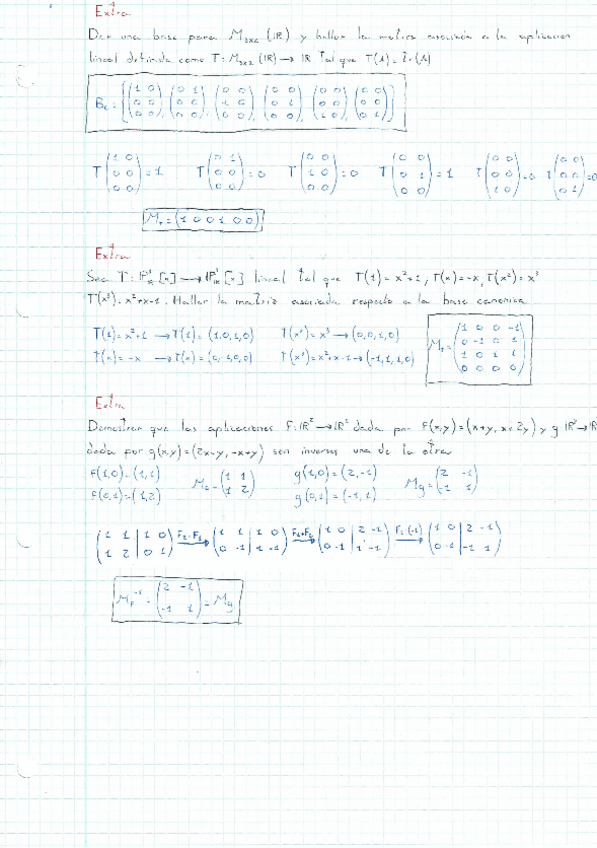 Extra
Dar una base para M₃ₓ₂(ℝ) y hallar la matriz asociada a la aplicacion
lineal definida como T: M₃ₓ₂(ℝ) → ℝ tal que T(A) = tr(A)
Bc = {(1 0; 0 0; 0 0), (0 1; 0 0; 0 0), (0 0; 1 0; 0 0), (0 0; 0 1; 0 0), (0 0; 0 0; 1 0), (0 0; 0 0; 0 1)}
T(1 0; 0 0; 0 0) = 1 T(0 1; 0 0; 0 0) = 0 T(0 0; 1 0; 0 0) = 0 T(0 0; 0 1; 0 0) = 1 T(0 0; 0 0; 1 0) = 0 T(0 0; 0 0; 0 1) = 0
M_T = (1 0 0 1 0 0)
Extra
Sea T: P³_ℝ[x] → P³_ℝ[x] lineal tal que T(1) = x²+1, T(x) = -x, T(x²) = x²
T(x³) = x²+x-1. Hallar la matriz asociada respecto a la base canonica
T(1) = x²+1 → T(1) = (1,0,1,0) T(x²) = x² → (0,0,1,0)
T(x) = -x → T(x) = (0,-1,0,0) T(x³) = x²+x-1 → (-1,1,1,0)
M_T = (1 0 0 -1; 0 -1 0 1; 1 0 1 1; 0 0 0 0)
Extra
Demostrar que las aplicaciones F: ℝ² → ℝ² dada por F(x,y) = (x+y, x+2y) y g: ℝ² → ℝ²
dada por g(x,y) = (2x-y, -x+y) son inversas una de la otra
F(1,0) = (1,1) M_F = (1 1; 1 2) g(1,0) = (2,-1) M_g = (2 -1; -1 1)
F(0,1) = (1,2) g(0,1) = (-1,1)
(1 1 | 1 0; 1 2 | 0 1) F₂-F₁ → (1 1 | 1 0; 0 -1 | 1 -1) F₁+F₂ → (1 0 | 2 -1; 0 -1 | 1 -1) F₂(-1) → (1 0 | 2 -1; 0 1 | -1 1)
M_F⁻¹ = (2 -1; -1 1) = M_g